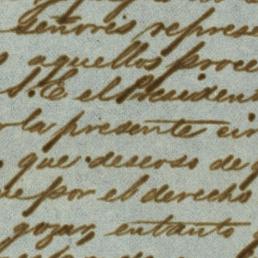 señores represe
aquellos proce
S. E el Presiden
la presente cir
que deseoso de
por el derecho
gozar, entanto